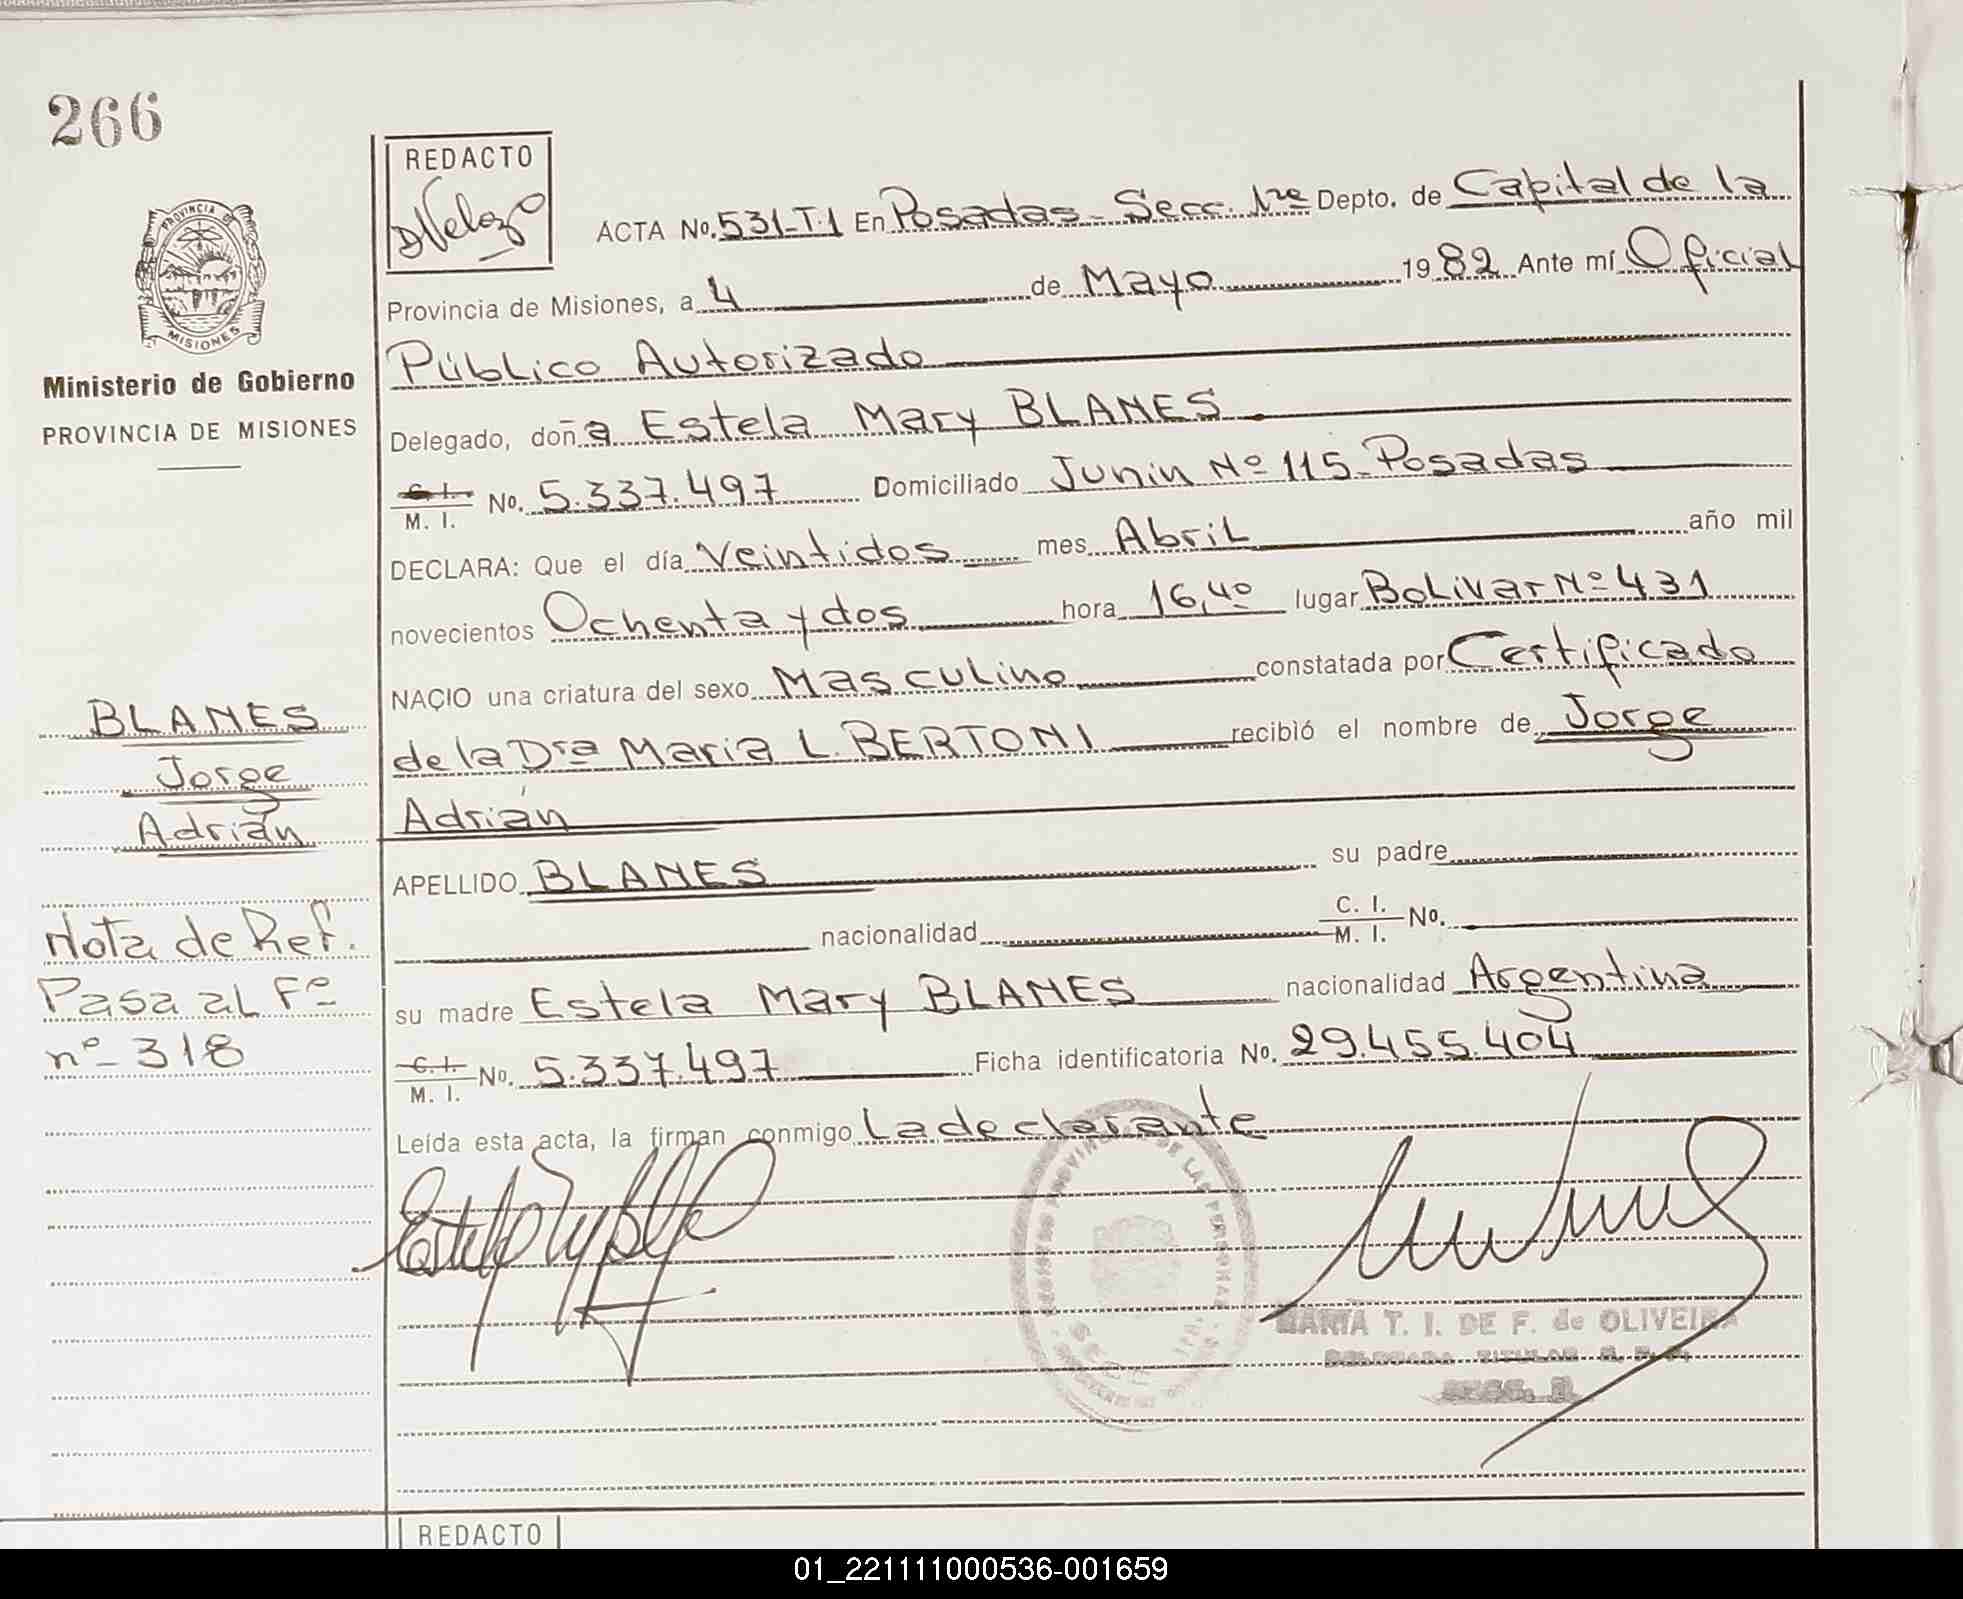 266
REDACTO
ACTA No. 531-T.1 En Posadas - Secc. 1ra Depto. de Capital de la
Provincia de Misiones, a 4 de Mayo 1982 Ante mí Oficial
Público Autorizado
Delegado, doña Estela Mary BLANES
C. I. / M. I. No. 5.337.497 Domiciliado Junin Nº 115 - Posadas
DECLARA: Que el día Veintidos mes Abril año mil
novecientos Ochenta y dos hora 16,40 lugar Bolivar Nº 431
NACIO una criatura del sexo Masculino constatada por Certificado
de la Dra Maria L. BERTONI recibió el nombre de Jorge
Adrián
APELLIDO BLANES su padre
nacionalidad C. I. / M. I. No.
su madre Estela Mary BLANES nacionalidad Argentina
C. I. / M. I. No. 5.337.497 Ficha identificatoria No. 29.455.404
Leída esta acta, la firman conmigo La declarante
PROVINCIA DE
MISIONES
Ministerio de Gobierno
PROVINCIA DE MISIONES
BLANES
Jorge
Adrián
Nota de Ref.
Pasa al Fº
nº - 318
DE LAS PERSONAS
MARIA T. I. DE F. de OLIVEIRA
DELEGADA TITULAR
REDACTO
01_221111000536-001659